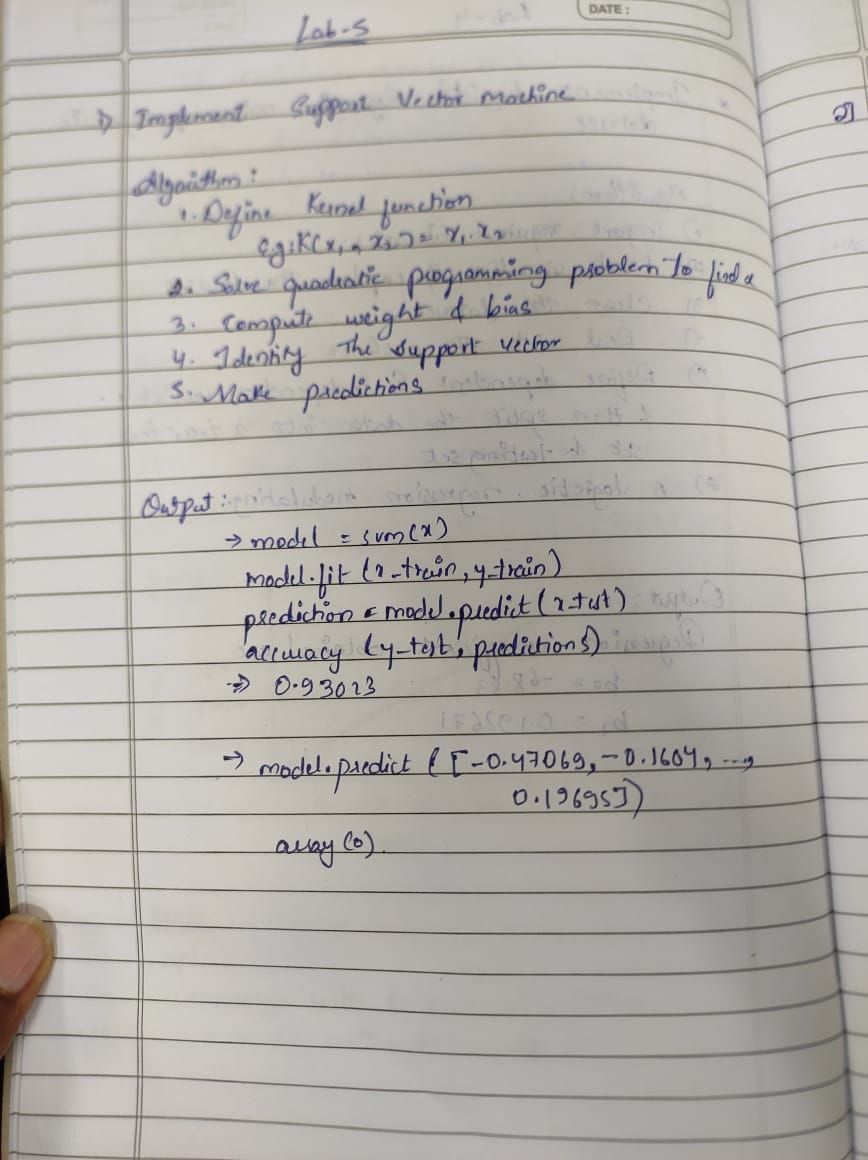 DATE:
Lab-5
1) Implement Support Vector Machine
2)
Algorithm:
1. Define Kernel function
e.g: K(x1, x2) = x1.x2
2. Solve quadratic programming problem to find α
3. Compute weight & bias
4. Identify the support vector
5. Make predictions
Output:
→ model = svm(x)
model.fit (x-train, y-train)
prediction = model.predict (x-test)
accuracy (y-test, predictions)
⇒ 0.93023
→ model.predict ([-0.47069, -0.1604, ...,
0.19695])
array (0).